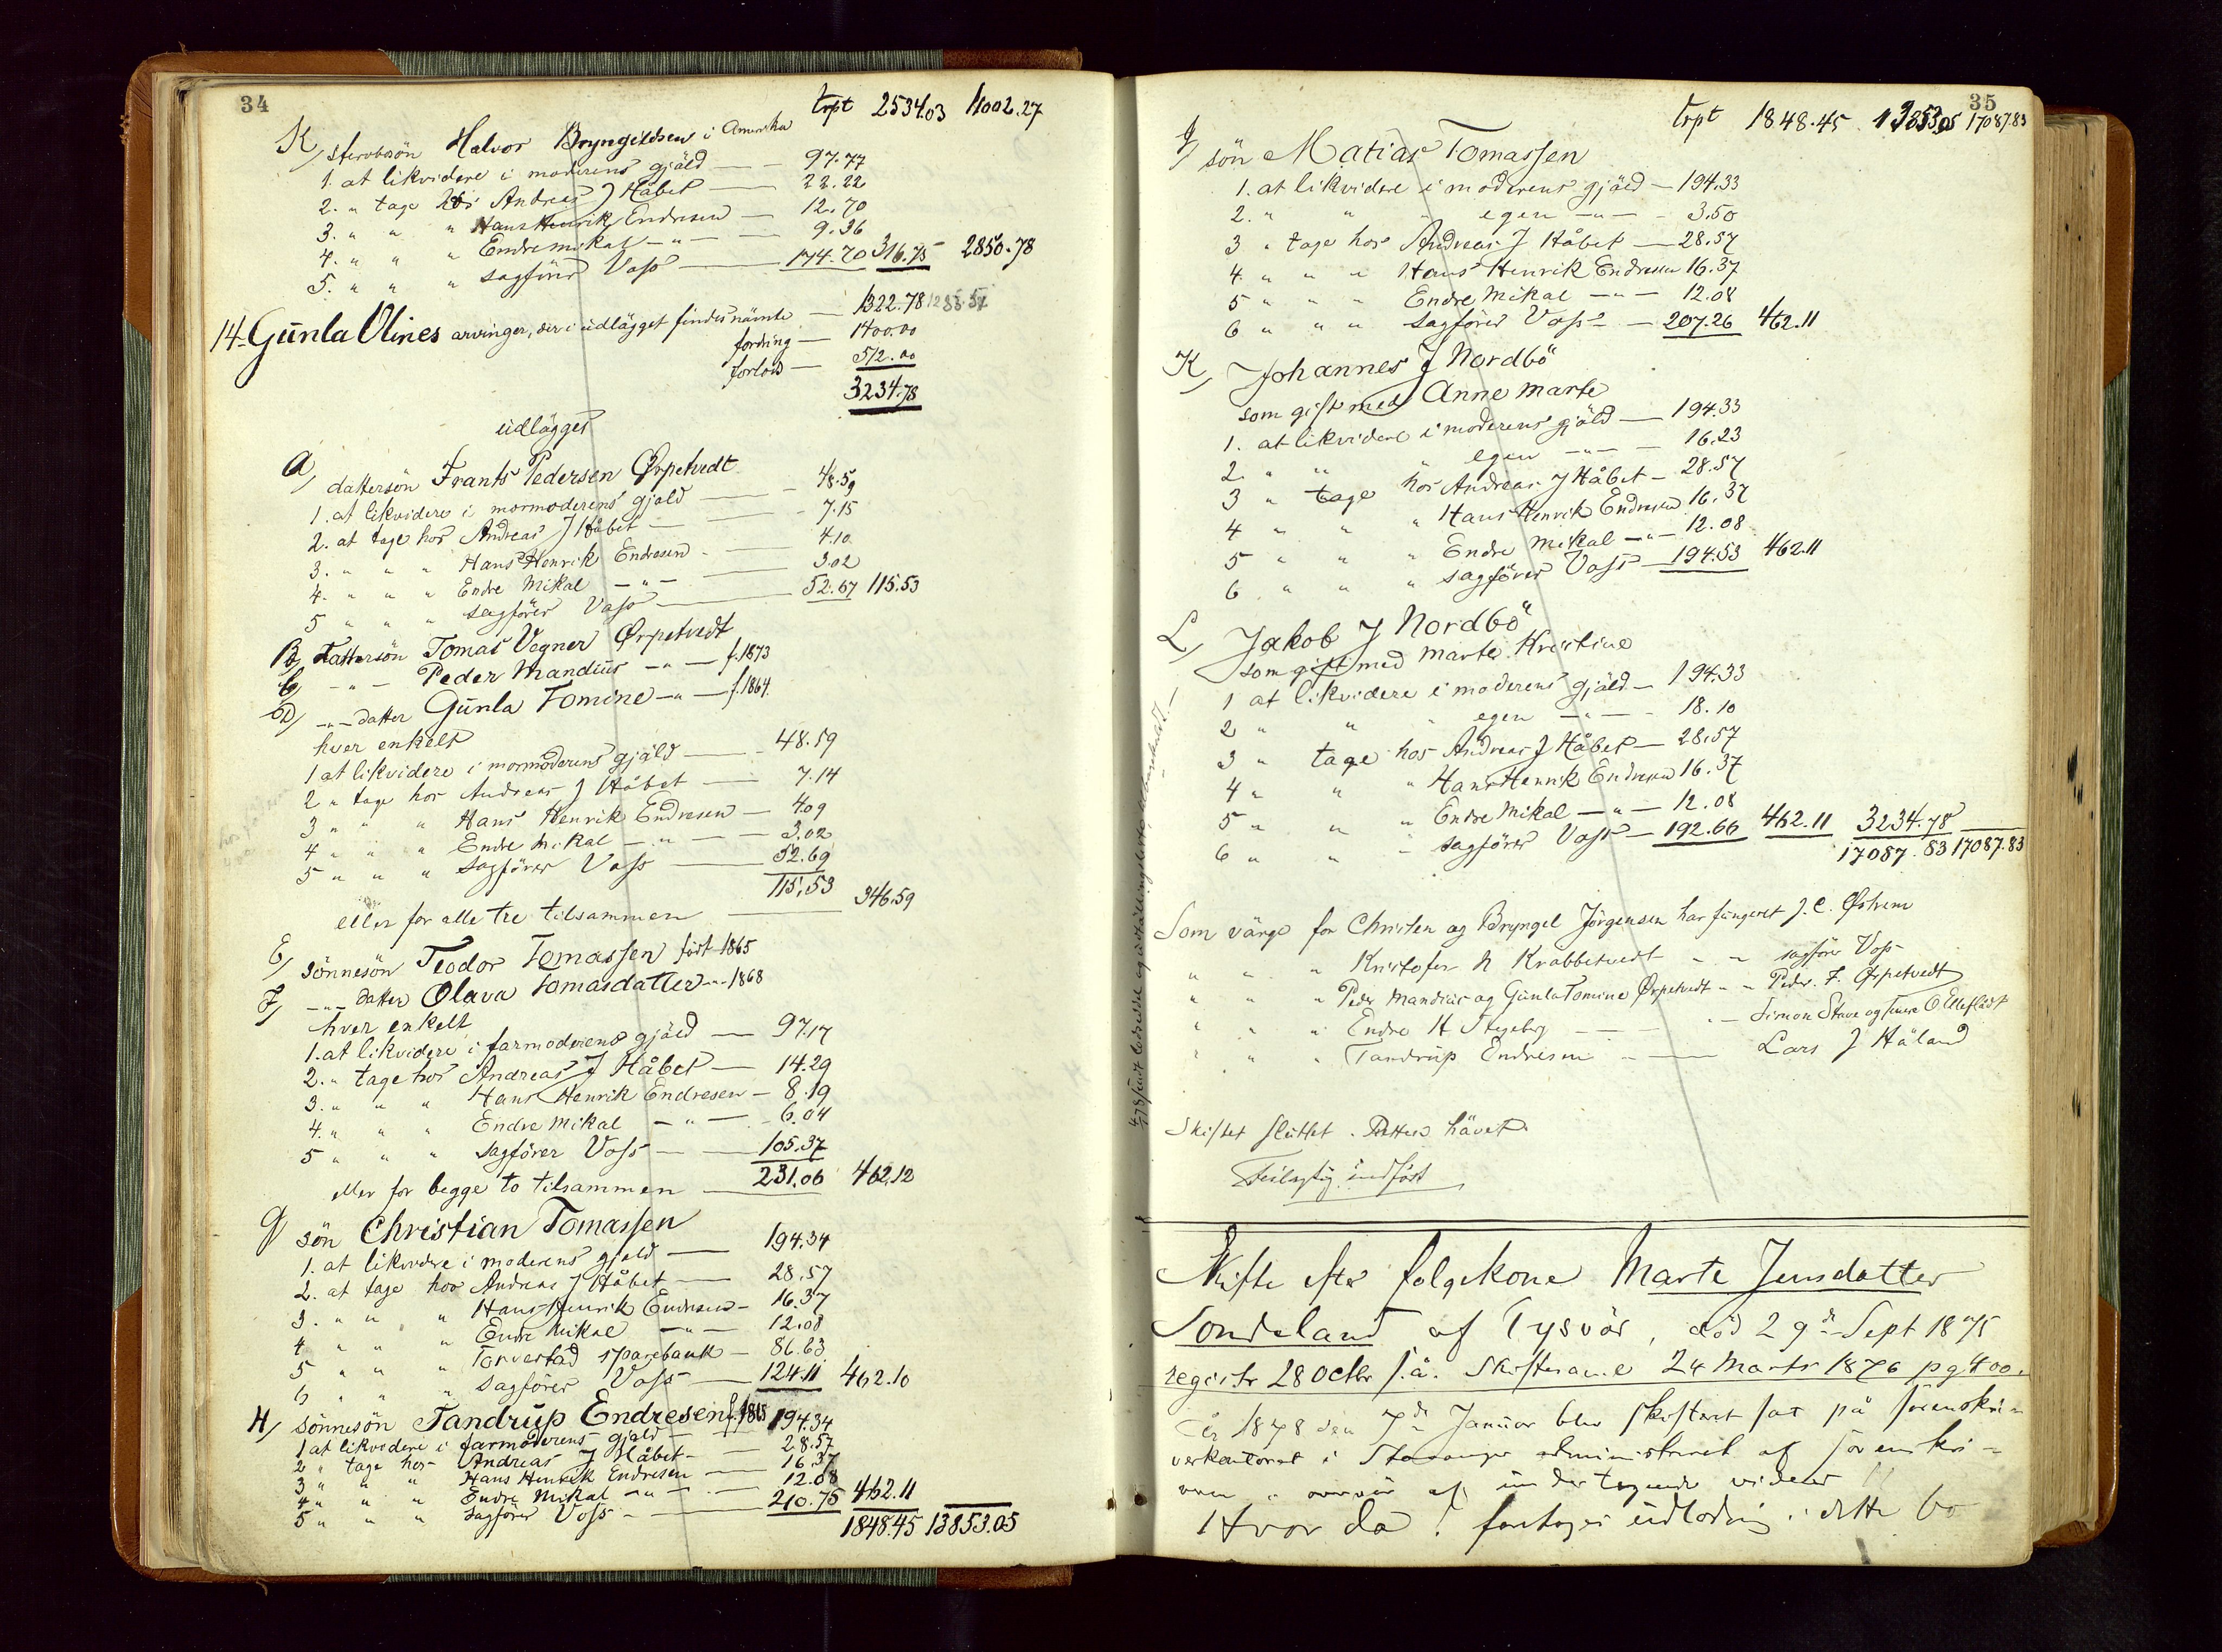 34
Trpt 2534.03 11002.27
K, stervbosön Halvor Bryngeldsen i Amerika
1. at likvidere i moderens gjäld — 97.77
2. " tage hos Andreas J Håbet — 22.22
3. " " " Hans Henrik Endresen — 12.70
4. " " " Endre Mikal — " — 9.36
5. " " " sagförer Voss — 174.70 316.75 2850.78
14. Gunla Olines arvinger, der i udlägget findes nämte — 1322.78
fordring — 1400.00
forlod — 512.00
3234.78
udlägges
a, dattersön Frants Pedersen Ørpetvedt
1. at likvidere i mormoderens gjald — 48.59
2. at tage hos Andreas J Håbet — 7.15
3. " " " Hans Henrik Endresen — 4.10
4. " " " Endre Mikal — " — 3.02
5 " " " sagförer Voss — 52.67 115.53
B, Dattersön Tomas Vegner Ørpetvedt
C, — " — Peder Mandius — " — f. 1873
D, — " — datter Gunla Tomine — " — f. 1864.
hver enkelt
1 at likvidere i mormoderens gjäld — 48.59
2 " tage hos Andreas J Håbet — 7.14
3 " " " Hans Henrik Endresen — 4.09
4 " " " Endre Mikal — " — 3.02
5 " " " sagförer Voss — 52.69
115.53
eller for alle tre tilsammen — 346.59
E, sönnesön Teodor Tomassen födt 1865
F, — " — datter Olava Tomasdatter — " — 1868
hver enkelt
1. at likvidere i farmoderens gjäld — 97.17
2. " tage hos Andreas J Håbet — 14.29
3. " " " Hans Henrik Endresen — 8.19
4. " " " Endre Mikal — " — 6.04
5 " " " sagförer Voss — 105.37
231.06 462.12
eller for begge to tilsammen
G sön Christian Tomassen
1. at likvidere i moderens gjeld — 194.34
2. at tage hos Andreas J Håbet — 28.57
3. " " " Hans Henrik Endresen — 16.37
4 " " " Endre Mikal — " — 12.08
5 " " " Torvestad sparebank — 86.63
6 " " " sagförer Voss — 124.11 462.10
H, sönnesön Tandrup Endresen f. 1865
1 at likvidere i farmoderens gjald — 194.34
2 " tage hos Andreas J Håbet — 28.57
3 " " " Hans Henrik Endresen — 16.37
4 " " " Endre Mikal — " — 12.08
5 " " " sagförer Voss — 210.75 462.11
1848.45 13853.05
35
Trpt 1848.45 13853.05 17087.83
J, sön Matias Tomassen
1. at likvidere i moderens gjäld — 194.33
2. " " " egen — " — 3.50
3 " tage hos Andreas J Håbet — 28.57
4. " " " Hans Henrik Endresen 16.37
5 " " " Endre Mikal — " — 12.08
6 " " " sagförer Voss — 207.26 462.11
K, Johannes J Nordbö
som gift med Anne Marte
1. at likvidere i moderens gjäld — 194.33
2. " " " egen — " — 16.23
3 " tage hos Andreas J Håbet — 28.57
4 " " " Hans Henrik Endresen 16.37
5 " " " Endre Mikal — " — 12.08
6 " " " sagförer Voss — 194.53 462.11
L, Jakob J Nordbö
som gift med Marte Kristine
1 at likvidere i moderens gjäld — 194.33
2 " " " egen — " — 18.10
3 " tage hos Andreas J Håbet — 28.57
4 " " " Hans Henrik Endresen 16.37
5 " " " Endre Mikal — " — 12.08
6 " " " sagförer Voss — 192.66 462.11 3234.78
17087.83 17087.83
Som värge for Christen og Bryngel Jörgensen har fungeret J. C. Østrem
" " " Kristofer N Krabbetvedt " " sagförer Voss
" " " Peder Mandius og Gunla Tomine Ørpetvedt " " Peder F. Ørpetvedt
" " " Endre H Stegeberg — " — Simon Stuve og
" " " Tandrup Endresen — Lars J Håland
Skiftet sluttet. Retten hävet.
Feilagtig indfört
Skifte efter folgekone Marte Jensdatter
Sondeland af Tysvär, död 29de Sept 1875
registr 28 Octbr s. å. Skiftesaml 24 Marts 1876 pg 400.
År 1878 den 7de Januar blev skifteret sat på sörenskri-
verkontoret i Stavanger administreret af sörenskri-
veren i overvär af undertegnede vidner
Hvor da: foretoges udlodning i dette bo